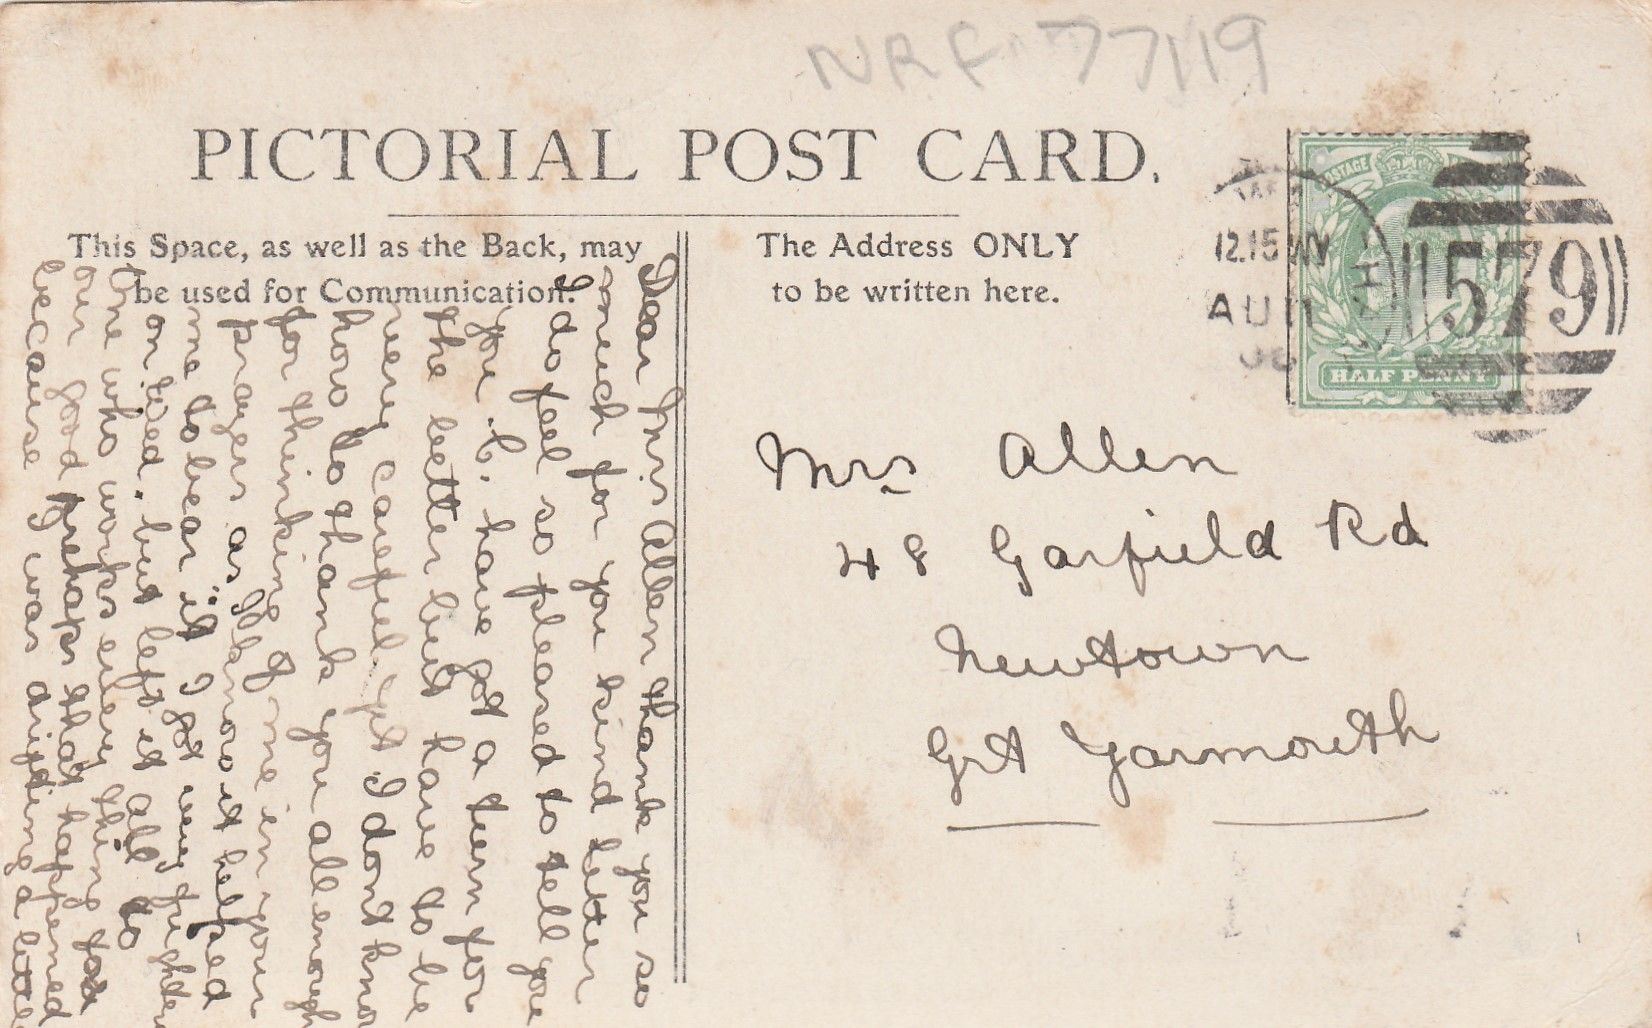 NRF 77/19
PICTORIAL POST CARD.
This Space, as well as the Back, may
be used for Communication.
The Address ONLY
to be written here.
12.15
AU 11
579
POSTAGE
HALF PENNY
Mrs Allen
48 Garfield Rd
Newtown
Grt Yarmouth
Dear Mrs Allen thank you so
much for you kind letter
I do feel so pleased to tell you
you. I have got a turn for
the better but have to be
very careful yet. I dont know
how to thank you all enough
for thinking of me in your
prayers as I know it helped
me to bear it I got very
on Wed. but left it all to
one who works every thing for
our good prehaps that happened
because I was a letter